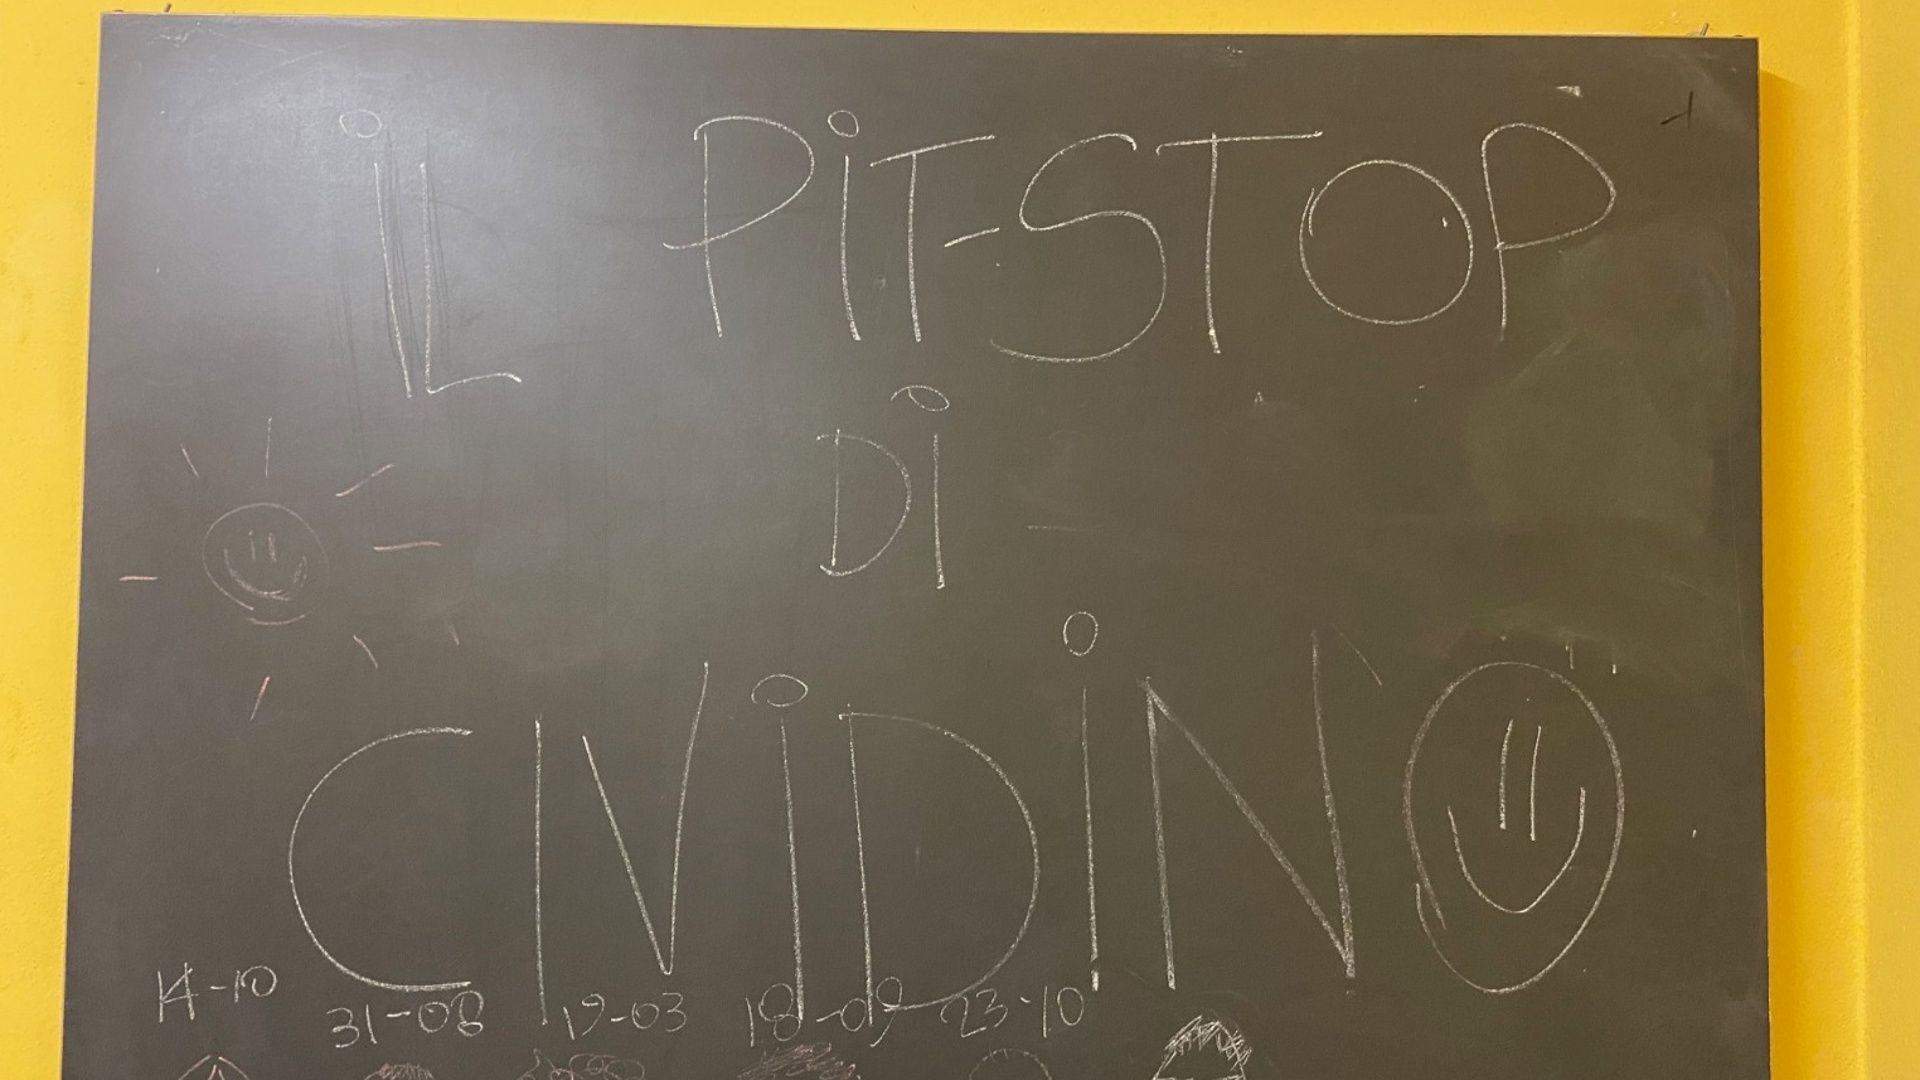 iL PiT-STOP
Di
CIViDiNO
14-10 31-08 19-03 18-09 23-10